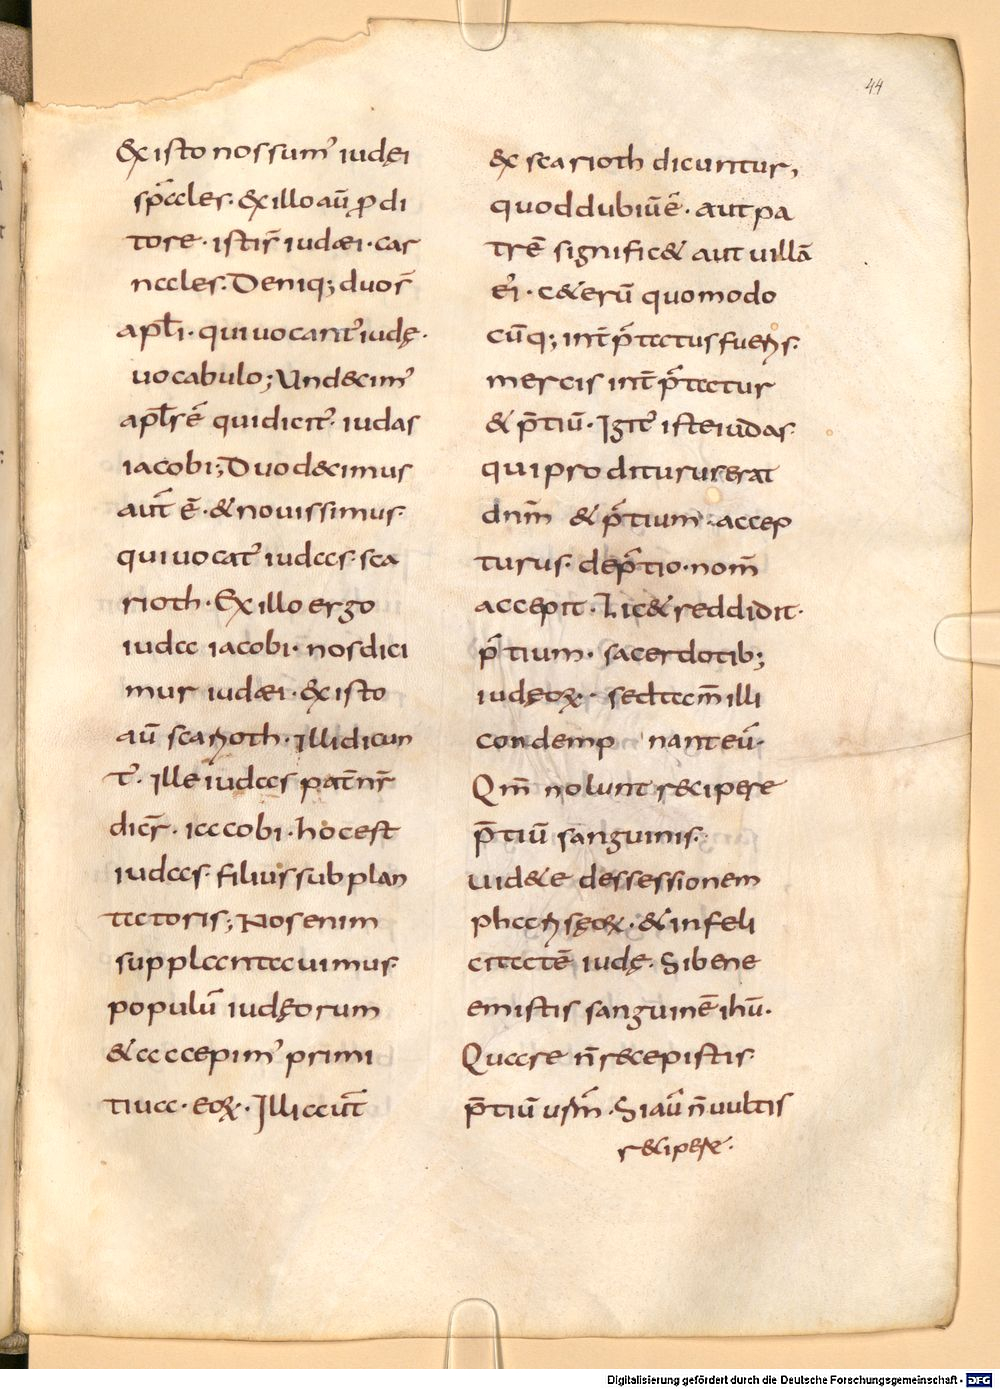 44
Ex isto nos sum᾿ iudęi
sp̄ales· Ex illo aū ꝓdi
tore· isti s̄ iudæi· car
nales. Deniq; duo s̄
apl̄i· qui uocant᾿ iudę·
uocabulo; Undecim᾿
apl̄s ē qui dicit᾿ iudas
iacobi; Duodecimus
aut̄ ē· & nouissimus·
qui uocat᾿ iudas· sca
rioth· Ex illo ergo
iuda iacobi· nos dici
mur iudæi· Ex isto
aū scarioth· Illi dicun
t᾿· ille iudas pat̄ nr̄
dicr̄· iacobi· hoc est
iudas· filius subplan
tatoris; Nos enim
supplantauimus·
populū iudęorum
& accepim᾿ primi
tiua· eoꝝ· Illi aut̄
ex scarioth dicuntur,
quod dubiū ē· aut pa
trē signific& aut uillā
ei᾿· c&erū quomodo
cūq; int̄p̄tatus fueris·
mercis int̄p̄tatur
& p̄tiū· Igit᾿ iste iudas·
qui proditurus erat
dnm̄ & p̄tium· accep
turus· de p̄tio· nom̄
accepit· Lic& reddidit·
p̄tium· sacerdotib;
iudęoꝝ· sed tam̄ illi
condemp nant eū·
Qm̄ nolunt recipere
p̄tiū sanguinis·
uid&e dessessionem
pharisęoꝝ· & infeli
citatē iudę· Si bene
emistis sanguinē ihū·
Quare n̄ recepistis·
p̄tiū usm̄· Si aū n̄ uultis
recipere·
Digitalisierung gefördert durch die Deutsche Forschungsgemeinschaft - DFG